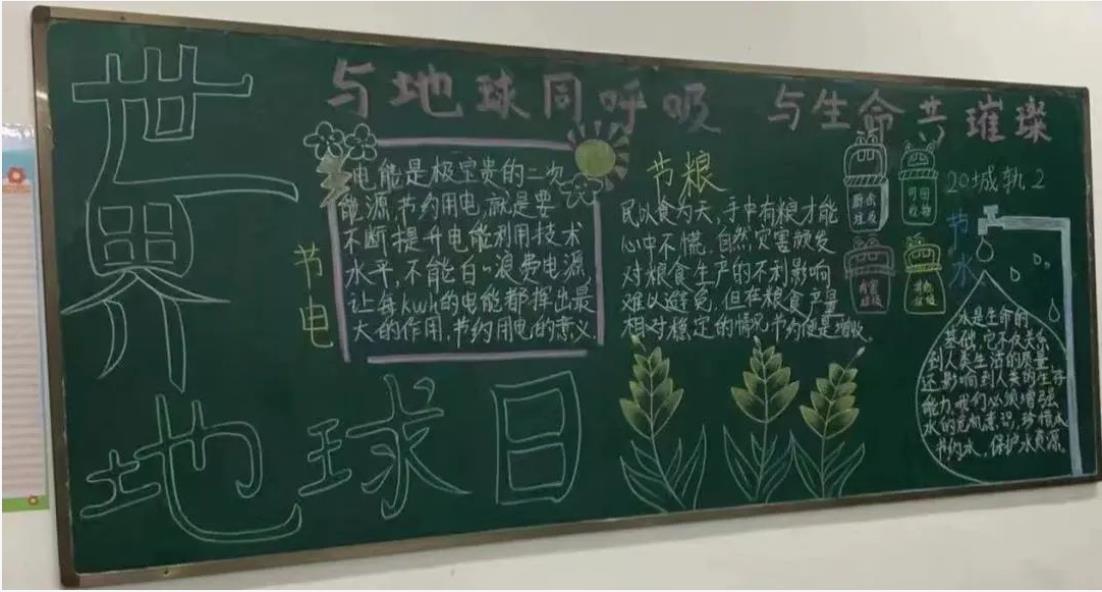 世界
地球日
与地球同呼吸 与生命共璀璨
节电
电能是极宝贵的二次
能源,节约用电,就是要
不断提升电能利用技术
水平,不能白白浪费电源
让每kwh的电能都挥出最
大的作用,节约用电的意义
节粮
民以食为天,手中有粮才能
心中不慌.自然灾害频发
对粮食生产的不利影响
难以避免,但在粮食产量
相对稳定的情况节约便是增收。
厨余
垃圾
可回
收物
有害
垃圾
其他
垃圾
20城轨2
节水
水是生命的
基础,它不仅关系
到人类生活的质量,
还影响到人类的生存
能力,我们必须增强
水的危机意识,珍惜水
节约水,保护水资源。